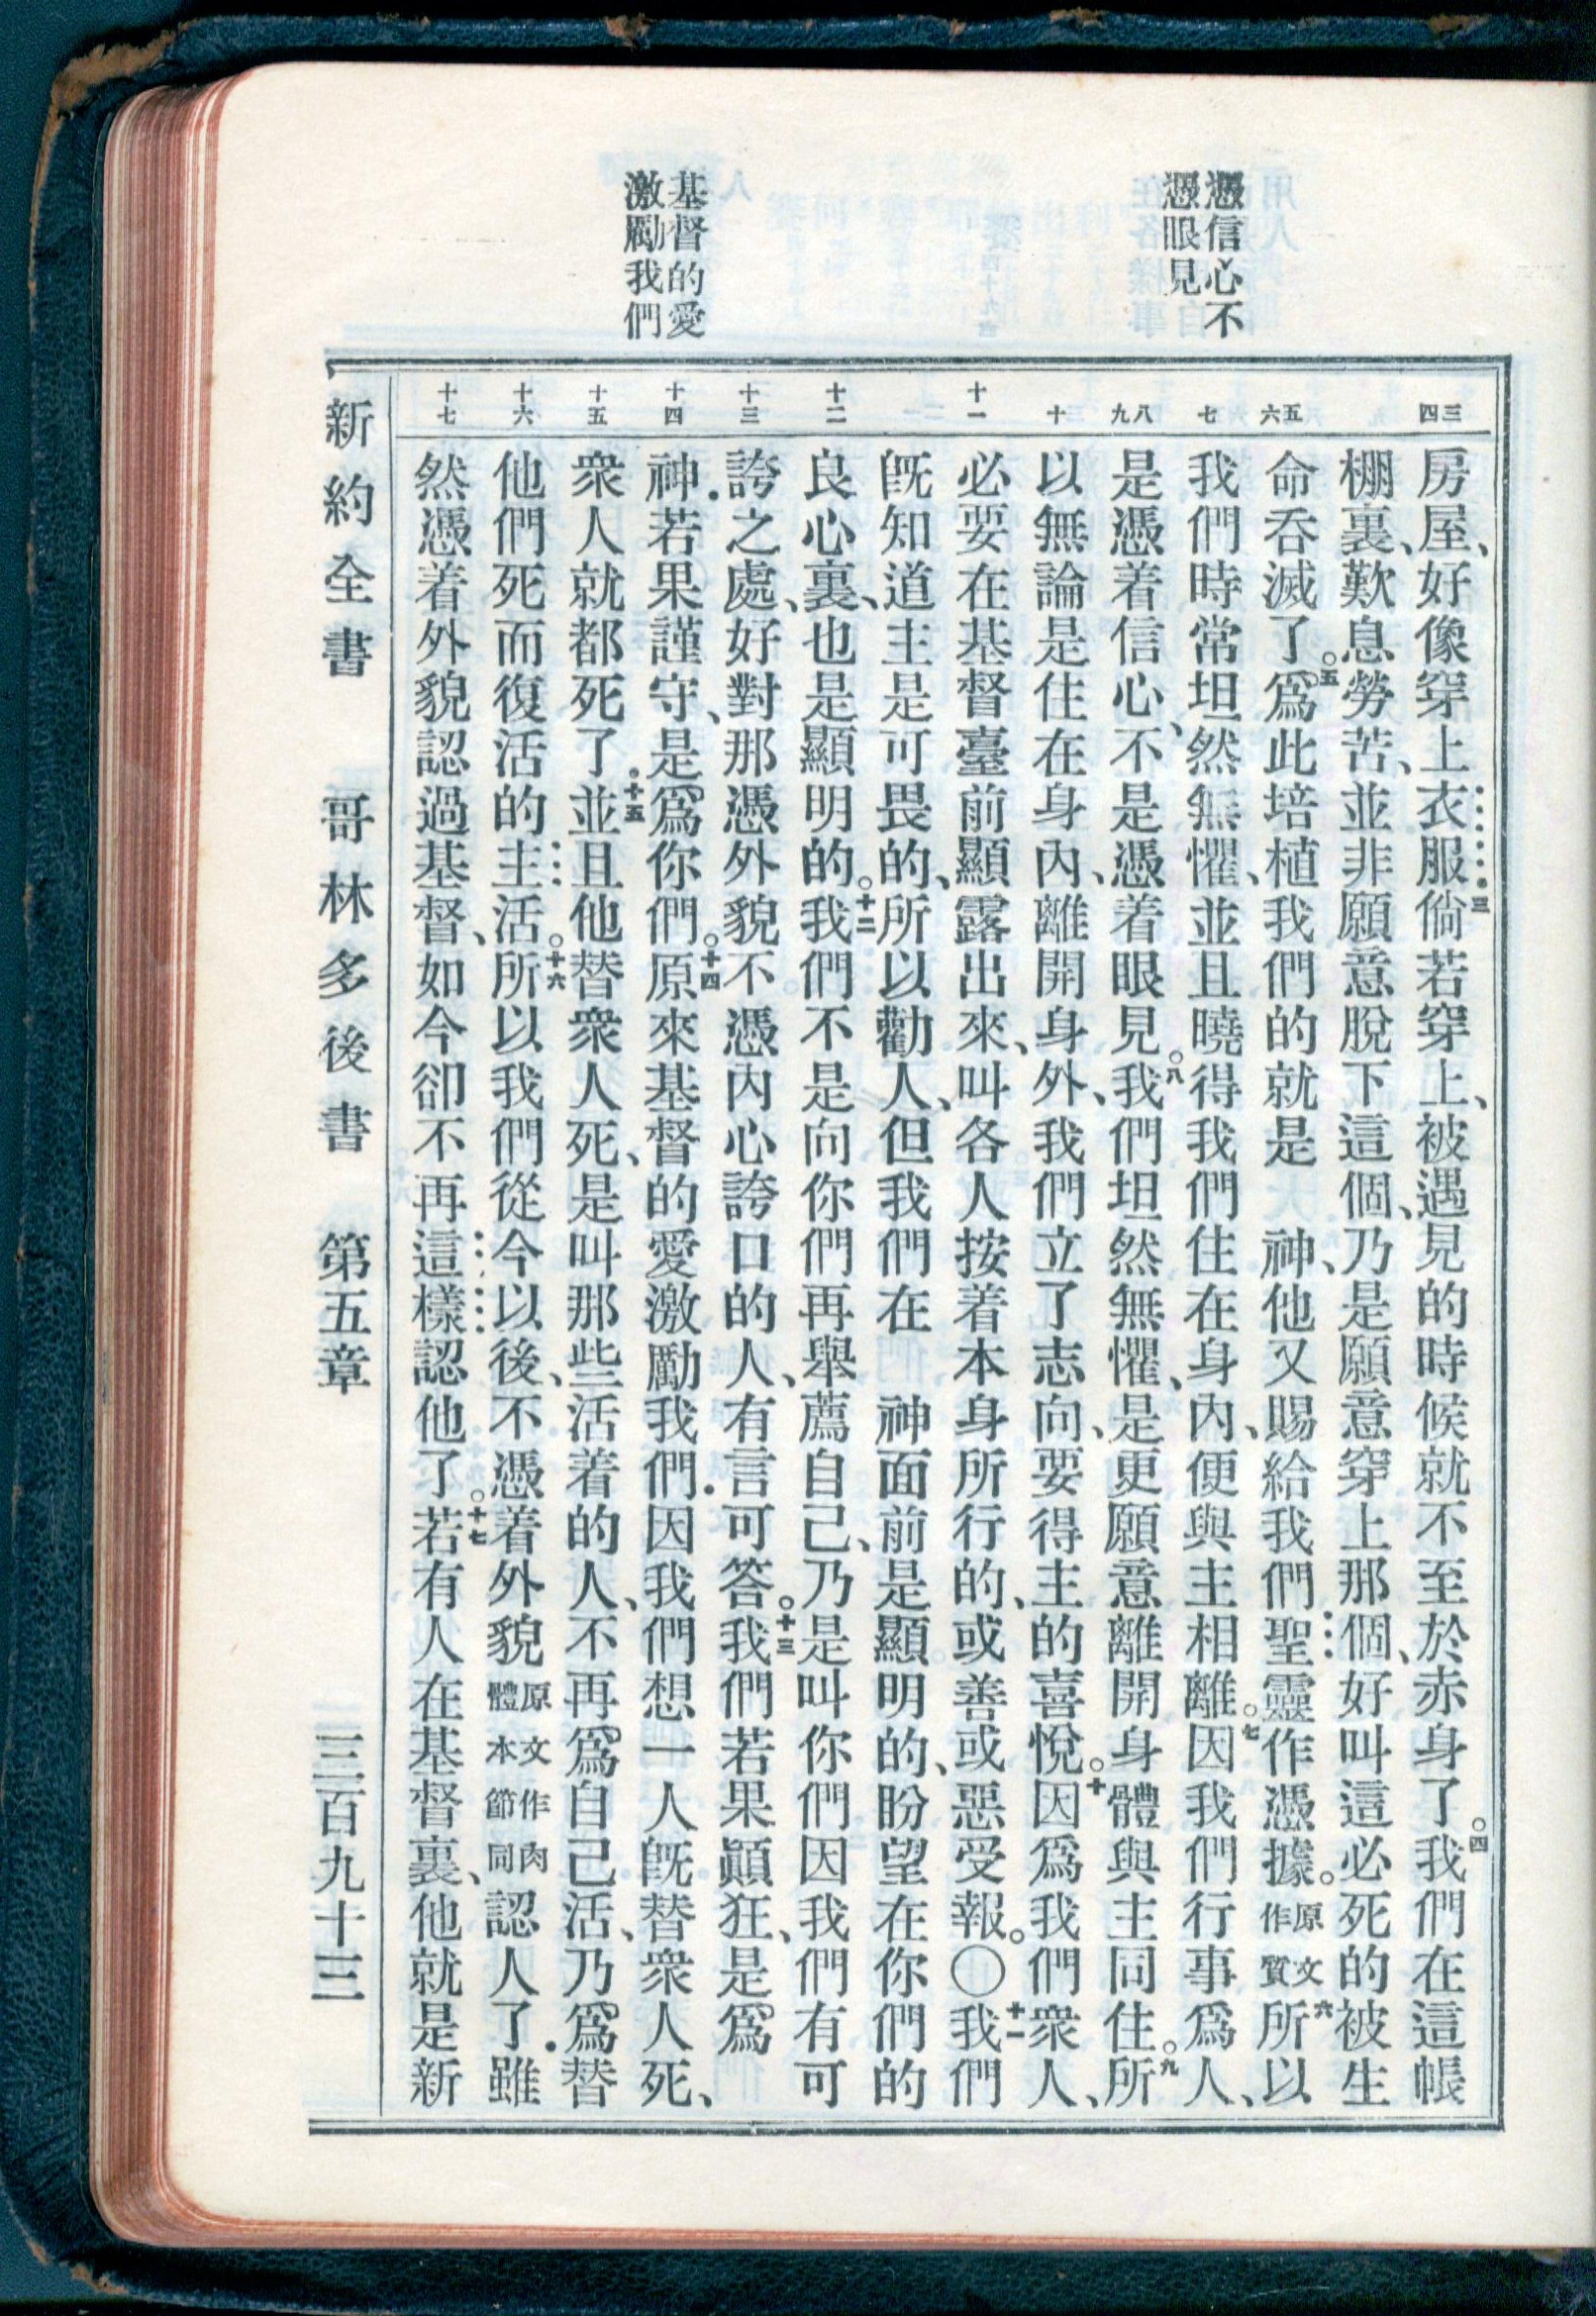 憑信心不
憑眼見
基督的愛
激勵我們
三
四
五
六
七
八
九
十
十一
十二
十三
十四
十五
十六
十七
房屋、好像穿上衣服三倘若穿上、被遇見的時候就不至於赤身了。四我們在這帳
棚裏、歎息勞苦、並非願意脫下這個、乃是願意穿上那個、好叫這必死的被生
命吞滅了。五爲此培植我們的就是　神、他又賜給我們聖靈作憑據。原文作質六所以
我們時常坦然無懼、並且曉得我們住在身內、便與主相離。七因我們行事爲人、
是憑着信心、不是憑着眼見。八我們坦然無懼、是更願意離開身體與主同住。九所
以無論是住在身內、離開身外、我們立了志向、要得主的喜悅。十因爲我們衆人、
必要在基督臺前顯露出來、叫各人按着本身所行的、或善或惡受報。〇十一我們
旣知道主是可畏的、所以勸人、但我們在　神面前是顯明的、盼望在你們的
良心裏、也是顯明的。十二我們不是向你們再舉薦自己、乃是叫你們因我們有可
誇之處、好對那憑外貌不憑內心誇口的人、有言可答。十三我們若果顚狂、是爲
神．若果謹守、是爲你們。十四原來基督的愛激勵我們．因我們想一人旣替衆人死、
衆人就都死了．十五並且他替衆人死、是叫那些活着的人、不再爲自己活、乃爲替
他們死而復活的主活。十六所以我們從今以後、不憑着外貌原文作肉體本節同認人了．雖
然憑着外貌認過基督、如今卻不再這樣認他了。十七若有人在基督裏、他就是新
新約全書　哥林多後書　第五章　三百九十三